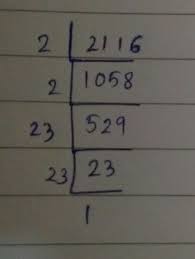 2 | 2116
2 | 1058
23 | 529
23 | 23
1